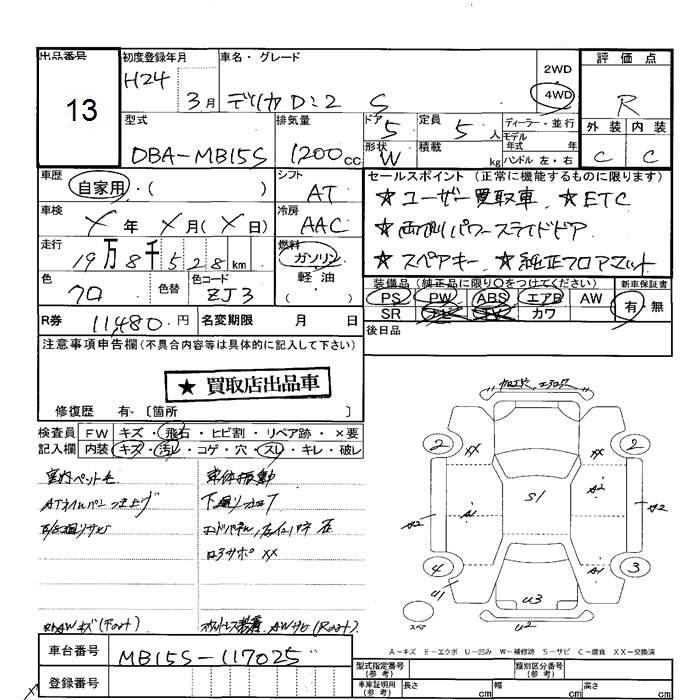 出品番号 初度登録年月 車名・グレード 評価点
13 H24 3月 デリカD:2 S 2WD 4WD R
型式 排気量 ドア 5 定員 5人 ディーラー・並行 外装 内装
DBA-MB15S 1200cc 形状 W 積載 kg モデル年式 年式 ハンドル 左・右 C C
車歴 自家用・( ) シフト AT セールスポイント(正常に機能するものに限ります)
★ユーザー買取車 ★ETC
車検 X年 X月(X日) 冷房 AAC ★両側パワースライドドア
走行 19万8千528km 燃料 ガソリン 軽油 ・( ) ★スペアキー ★純正フロアマット
色 色替 色コード ZJ3 装備品(純正品に限り○をつけてください) 新車保証書
PS PW ABS エアB AW 有・無
R券 11,480円 名変期限 月 日 SR ナビ TV カワ
注意事項申告欄(不具合内容等は具体的に記入して下さい) 後日品
★ 買取店出品車
修復歴 有・〔箇所 〕
検査員 FW キズ・飛石・ヒビ割・リペア跡・×要
記入欄 内装 キズ・汚レ・コゲ・穴・スレ・キレ・破レ
室内ペット毛 車体振動
ATオイルパン突上げ 下廻りカキズ
下廻りサビ
コアサポXX
AWキズ(Front) AWサビ(Rear)
2 XX 2
A2 A1 S1 A2 A2
4 A1 3
U1 U3
スペア U2
A-キズ E-エクボ U-凹み W-補修跡 S-サビ C-腐食 XX-交換済
車台番号 MB15S-117025
登録番号
型式指定番号(参考) 類別区分番号(参考)
車庫証明用(参考) 長さ cm 幅 cm 高さ cm